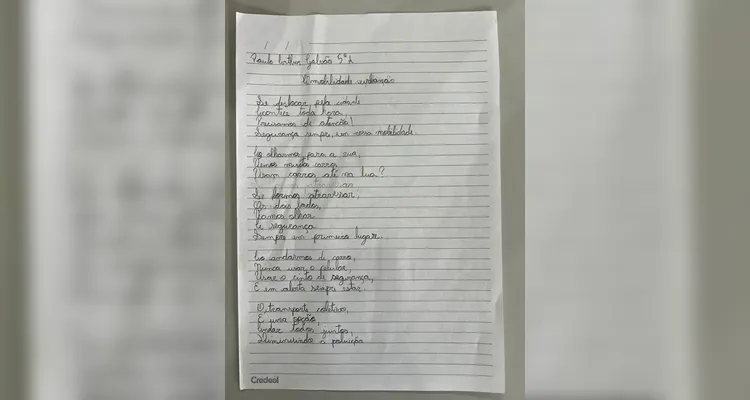 / /
Paulo Arthur Galvão 5º A
A mobilidade urbana
Se deslocar pela cidade
Acontece toda hora,
Precisamos de atenção!
Segurança sempre, em nossa mobilidade.
Ao olharmos para a rua,
Vemos muitos carros
Usam carros, até na lua?
Se formos atravessar,
Os dois lados,
Vamos olhar
E segurança
Sempre em primeiro lugar.
Ao andarmos de carro,
Nunca usar o celular,
Usar o cinto de segurança,
E em alerta sempre estar.
O transporte coletivo,
É uma opção,
Andar todos juntos,
Diminuindo a poluição
Credeal